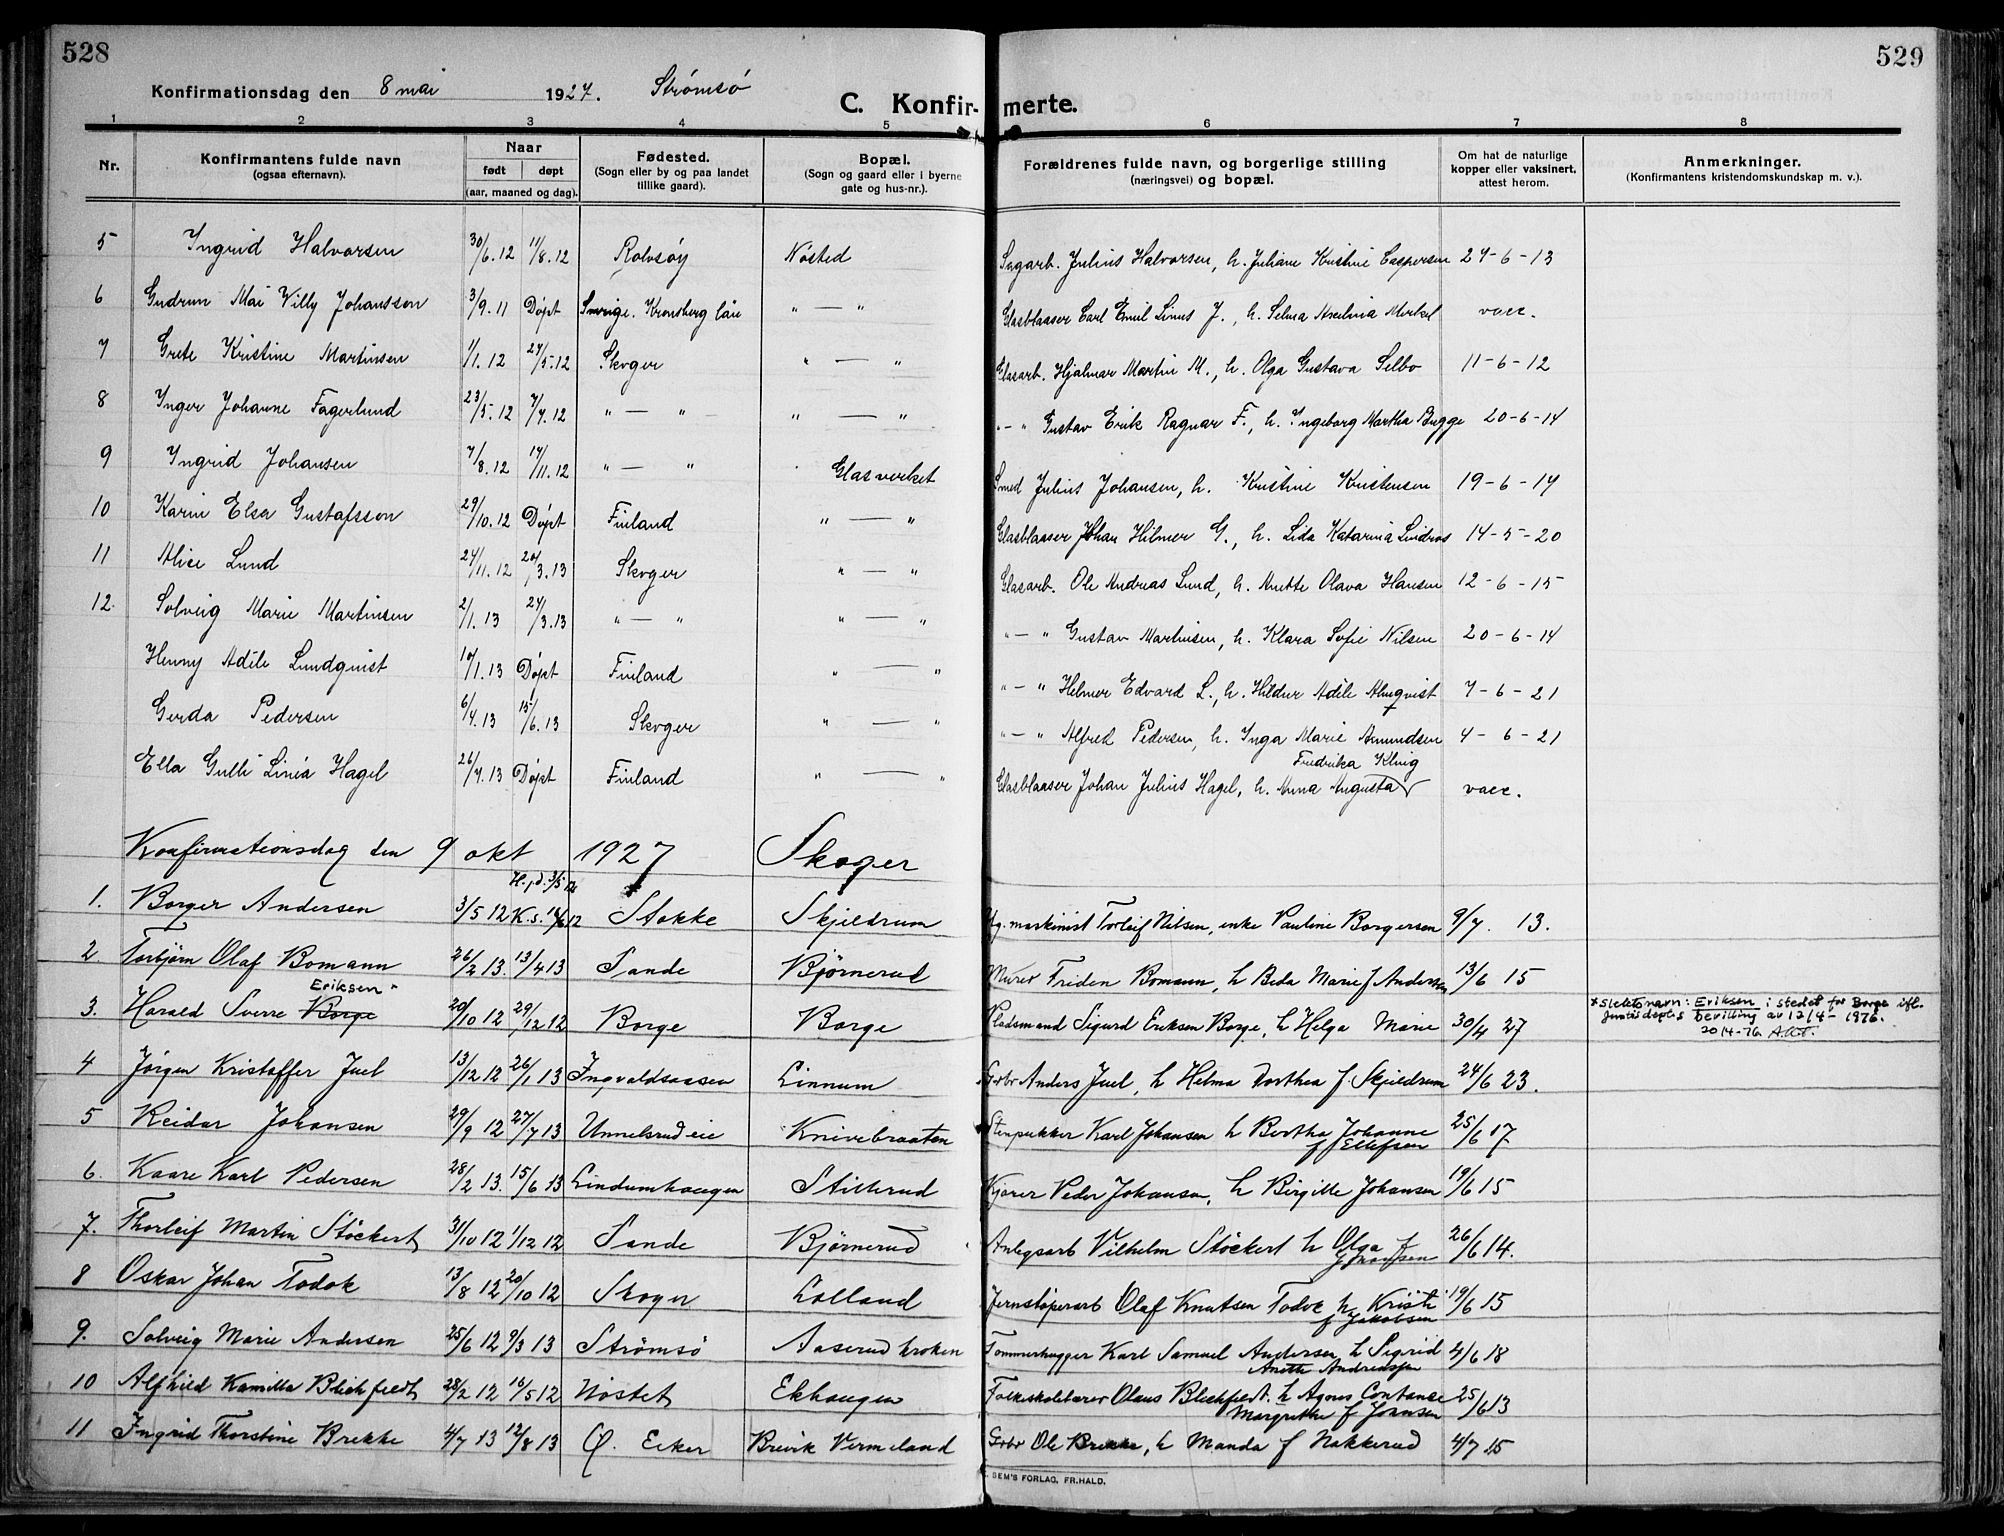 528
529
Konfirmationsdag den 8 mai 1927. Strømsø
C. Konfirmerte.
1 2 3 4 5 6 7 8
Nr. Konfirmantens fulde navn (ogsaa efternavn). Naar født døpt (aar, maaned og dag). Fødested. (Sogn eller by og paa landet tillike gaard). Bopæl. (Sogn og gaard eller i byerne gate og hus-nr.). Forældrenes fulde navn, og borgerlige stilling (næringsvei) og bopæl. Om hat de naturlige kopper eller vaksinert, attest herom. Anmerkninger. (Konfirmantens kristendomskundskap m. v.).
5 Ingrid Halvorsen 30/6.12 11/8.12 Rolvsøy Nøsted Sagarb. Julius Halvorsen, h. Juliane Kristine Caspersen 27-6-13
6 Gudrun Mai Willy Johansson 3/9.11 Døpt Sverige. Kronoberg län " — " Glasblaaser Carl Emil Linus J., h. Selma Merkel vacc.
7 Grete Kristine Martinsen 1/1.12 27/5.12 Skoger " — " Glasarb. Hjalmar Martin M., h. Olga Gustava Selbo 11-6-12
8 Inger Johanne Fagerlund 23/5.12 7/7.12 " — " " — " " — " Gustav Erik Ragnar F., h. Ingeborg Martha Bugge 20-6-14
9 Ingrid Johansen 7/8.12 17/11.12 " — " Glasverket Smed Julius Johansen, h. Kristine Kristensen 19-6-14
10 Karin Elsa Gustafsson 29/10.12 Døpt Finland " — " Glasblaaser Johan Hilmer G., h. Lida Katarina Lindros 14-5-20
11 Alice Lund 24/11.12 20/3.13 Skoger " — " Glasarb. Ole Andreas Lund, h. Anette Olava Hansen 12-6-15
12. Solveig Marie Martinsen 2/1.13 24/3.13 " — " " — " " — " Gustav Martinsen, h. Klara Sofie Nilsen 20-6-14
Henny Adéle Lundqvist 10/1.13 Døpt Finland " — " " — " Helmer Edvard L., h. Hildur Adéle Almqvist 7-6-21
Gerda Pedersen 6/4.13 15/6.13 Skoger " — " " — " Alfred Pedersen, h. Inga Marie Amundsen 4-6-21
Ella Gulli Linéa Hagel 26/4.13 Døpt Finland " — " Glasblaaser Johan Julius Hagel, h. Anna Augusta Fredrika Kling vacc.
Konfirmationsdag den 9 okt 1927 Skoger
1. Borger Andersen 3/5 12 H.d. 3/5 12 K.s. 16/6 12 Stokke Skjeldrum maskinist Torleif Nilsen, enke Pauline Borgersen 9/7. 13.
2. Torbjørn Olaf Bomann 26/2 13. 13/4 13 Sande Bjørnerud Murer Friden Bomann, h Beda Marie f Andersen 13/6 15
3. Harald Sverre Borge Eriksen 20/10 12 29/12 12 Borge Borge Pladsmand Sigurd Eriksen Borge, h Helga Marie 30/4 27 *slektsnavn: Eriksen i stedet for Borge ifl. Justisdepts bevilling av 12/4-1976. 20/4-76.
4 Jørgen Kristoffer Juel 13/12 12 26/1 13 Ingvaldsaasen Linnum Gbr Anders Juel, h Helma Dorthea f. Skjeldrum 24/6 23.
5 Reidar Johansen 29/9 12 27/7 13 Unnelsrudeie Knivebraaten Stenpukker Karl Johansen h Bertha Johanne f Ellefsen 25/6 17
6. Kaare Karl Pedersen 28/2 13. 15/6 13 Lindumhaugen Stillerud Kjører Peder Johansen, h Birgitte Johansen 19/6 15
7. Thorleif Martin Støckert 31/10 12 1/12 12 Sande Bjørnerud Anlegsarb Vilhelm Støckert h Olga f 26/6 14.
8 Oskar Johan Todok 13/8 12 20/10 12 Skoger Lolland Jernstøperarb Olaf Knutsen h Kristi f Jakobsen 19/6 15
9. Solveig Marie Andersen 25/6 12 9/3 13 Strømsø Aaserud kroken Tømmerhugger Karl Samuel Andersen h Sigrid Anette Andreassen 4/6 18
10 Alfhild Kamilla Blichfeldt 28/2 12 16/5 12 Nøstet Ekhaugen Folkeskolelærer Olaus Blichfeldt. h Agnes Contanse Margrethe f Johnsen 25/6 13
11 Ingrid Thorstine Brekke 4/7 13 12/8 13 Ø. Eiker Brevik Vermeland Gbr Ole Brekke, h Manda f Nakkerud 4/7 15
SEM'S FORLAG, FR.HALD.